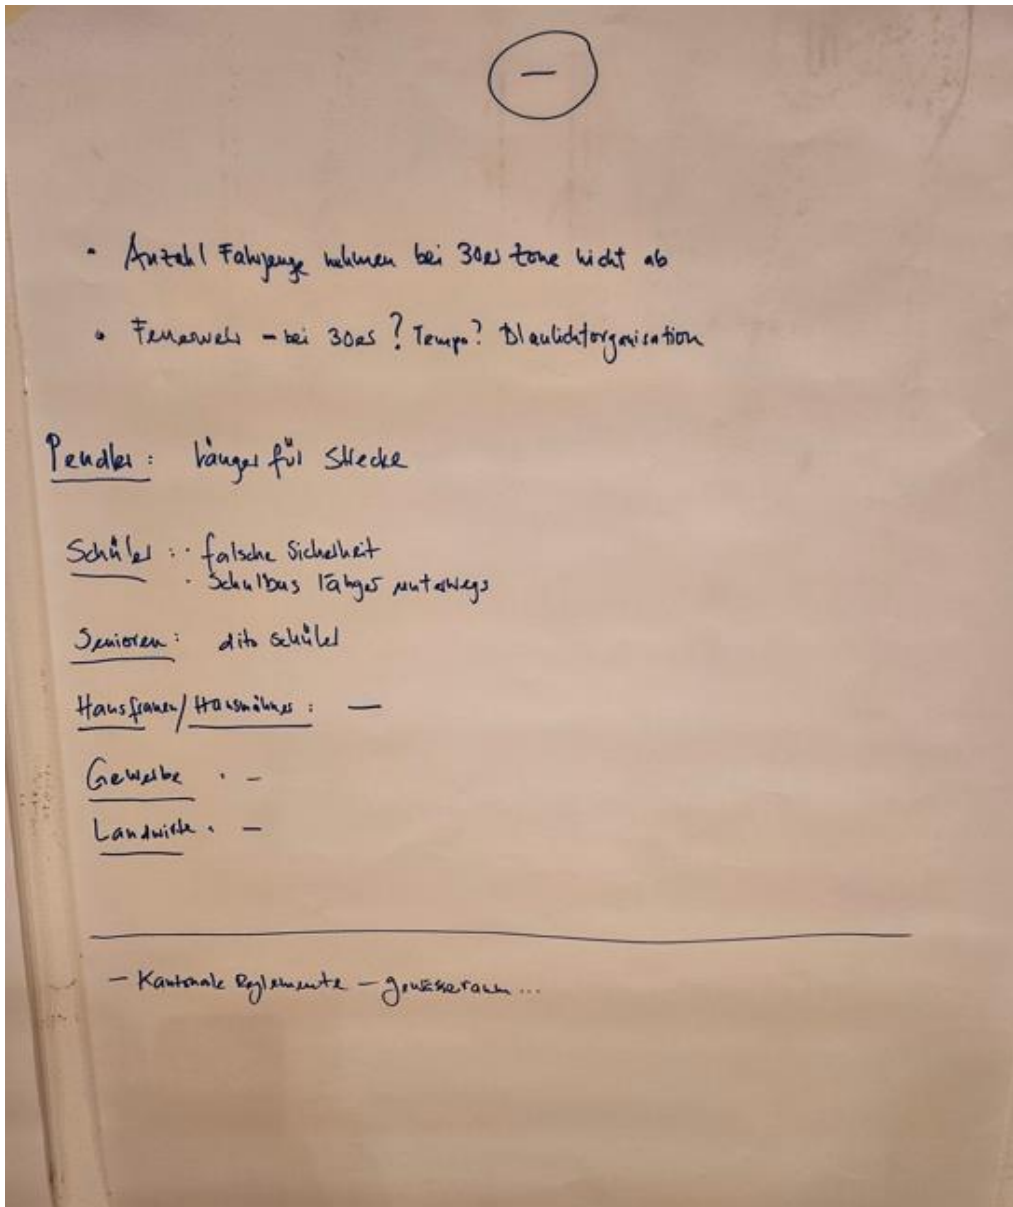 –
• Anzahl Fahrzeuge nehmen bei 30er Zone nicht ab
• Feuerwehr – bei 30er? Tempo? Blaulichtorganisation
Pendler: länger für Strecke
Schüler: · falsche Sicherheit
· Schulbus länger unterwegs
Senioren: dito Schüler
Hausfrauen/Hausmänner: –
Gewerbe : –
Landwirte : –
– Kantonale Reglemente – Gewässerraum...